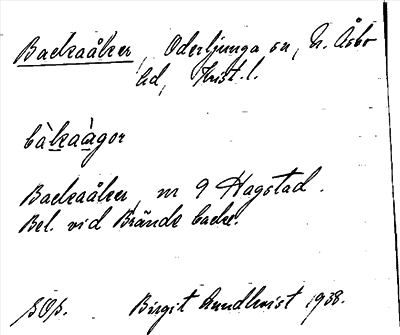 Backaåker, Oderljunga sn, N. Åsbo
hd, Krist. l.
bàkaàgor
Backaåker, nr 9 Hagstad.
Bel. vid Brände backe.
Birgit Lundkvist 1938.